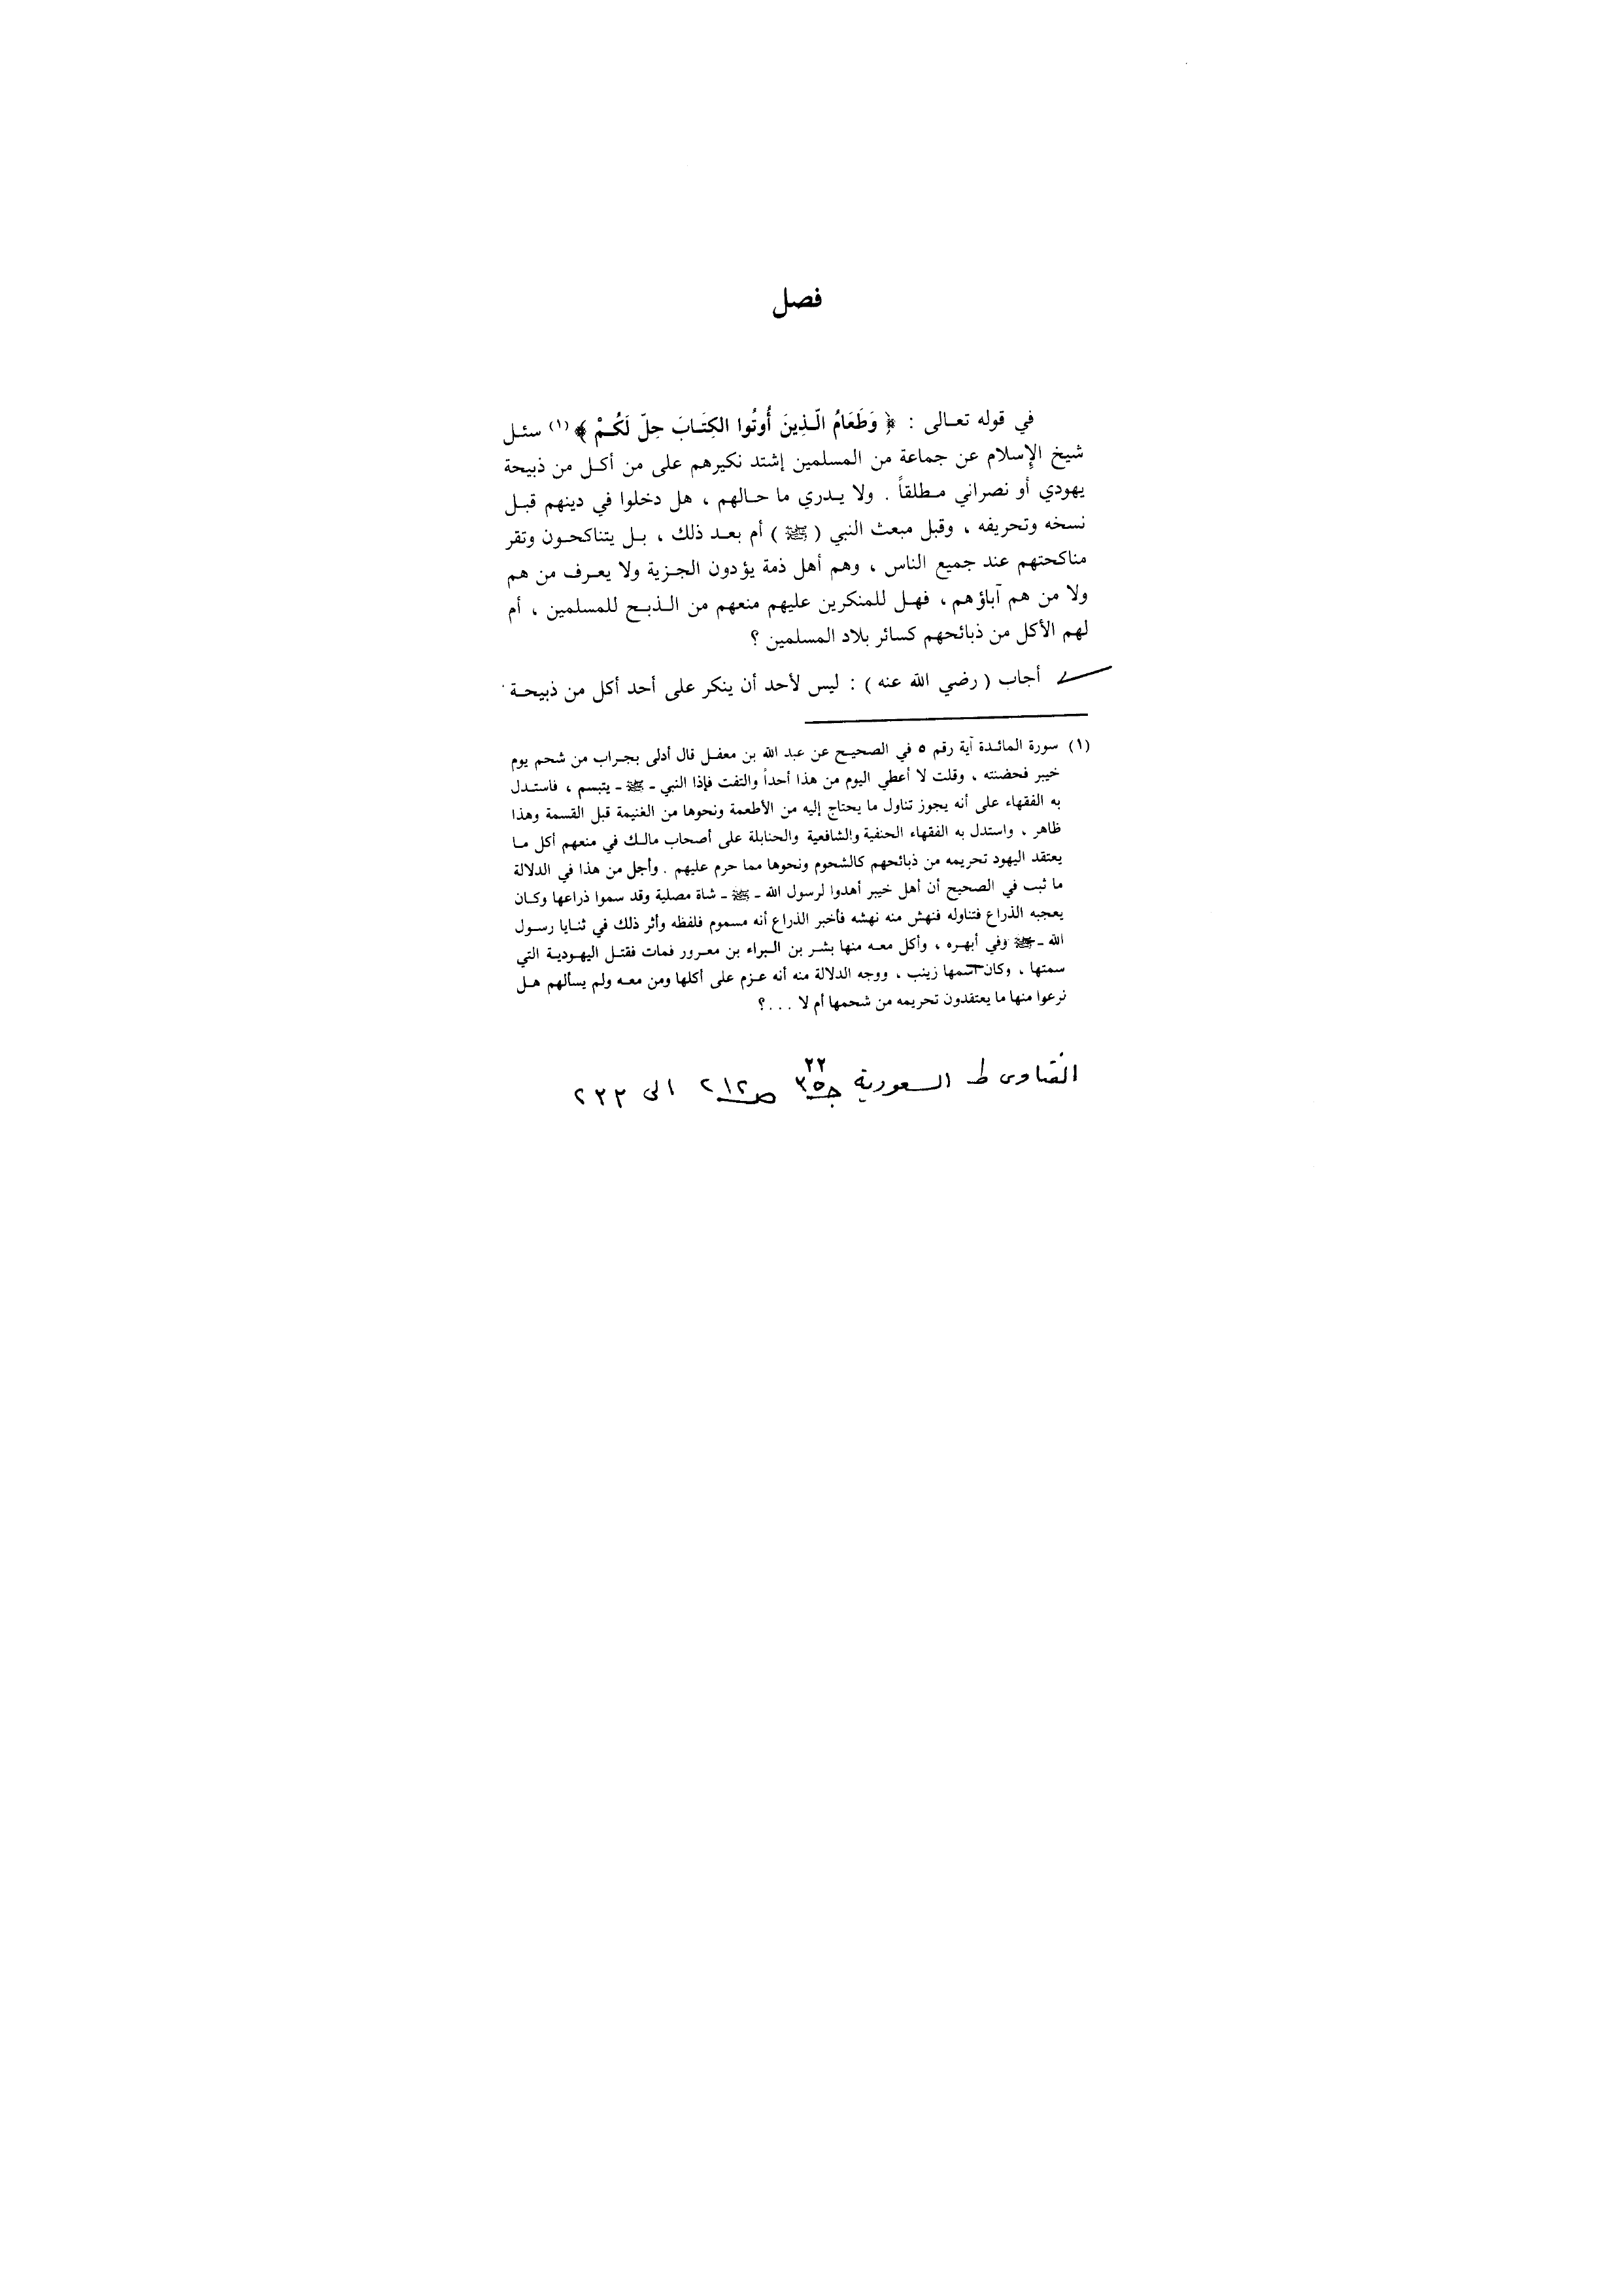 فصل
في قوله تعالى : ﴿ وَطَعَامُ الّذِينَ أُوتُوا الكِتَابَ حِلّ لَكُمْ ﴾ (١) سئل
شيخ الإسلام عن جماعة من المسلمين إشتد نكيرهم على من أكل من ذبيحة
يهودي أو نصراني مطلقاً . ولا يدري ما حالهم ، هل دخلوا في دينهم قبل
نسخه وتحريفه ، وقبل مبعث النبي ( ﷺ ) أم بعد ذلك ، بل يتناكحون وتقر
مناكحتهم عند جميع الناس ، وهم أهل ذمة يؤدون الجزية ولا يعرف من هم
ولا من هم آباؤهم ، فهل للمنكرين عليهم منعهم من الذبح للمسلمين ، أم
لهم الأكل من ذبائحهم كسائر بلاد المسلمين ؟
أجاب ( رضي الله عنه ) : ليس لأحد أن ينكر على أحد أكل من ذبيحة
(١) سورة المائدة آية رقم ٥ في الصحيح عن عبد الله بن معفل قال أدلى بجراب من شحم يوم
خيبر فحضنته ، وقلت لا أعطي اليوم من هذا أحداً والتفت فإذا النبي - ﷺ - يتبسم ، فاستدل
به الفقهاء على أنه يجوز تناول ما يحتاج إليه من الأطعمة ونحوها من الغنيمة قبل القسمة وهذا
ظاهر ، واستدل به الفقهاء الحنفية والشافعية والحنابلة على أصحاب مالك في منعهم أكل ما
يعتقد اليهود تحريمه من ذبائحهم كالشحوم ونحوها مما حرم عليهم . وأجل من هذا في الدلالة
ما ثبت في الصحيح أن أهل خيبر أهدوا لرسول الله - ﷺ - شاة مصلية وقد سموا ذراعها وكان
يعجبه الذراع فتناوله فنهش منه نهشه فأخبر الذراع أنه مسموم فلفظه وأثر ذلك في ثنايا رسول
الله - ﷺ وفي أبهره ، وأكل معه منها بشر بن البراء بن معرور فمات فقتل اليهودية التي
سمتها ، وكان اسمها زينب ، ووجه الدلالة منه أنه عزم على أكلها ومن معه ولم يسألهم هل
نرعوا منها ما يعتقدون تحريمه من شحمها أم لا . . . ؟
٢٢
الفتاوى ط السعودية ج٣٥ ص٢١٢ الى ٢٣٣